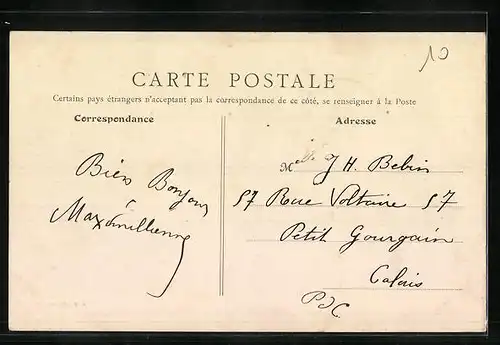 10
CARTE POSTALE
Certains pays étrangers n'acceptant pas la correspondance de ce côté, se renseigner à la Poste
Correspondance
Adresse
Bien Bonjour
Maximillienne
M J H. Bebin
57 Rue Voltaire 57
Petit Gourgain
Calais
PdC